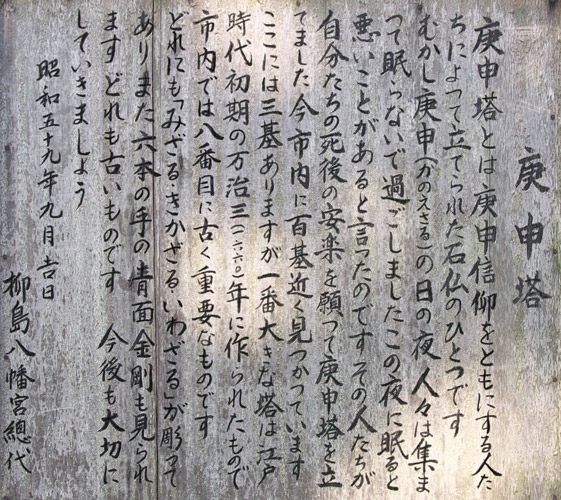 庚申塔
庚申塔とは庚申信仰をともにする人た
ちによって立てられた石仏のひとつです
むかし庚申(かのえさる)の日の夜人々は集ま
って眠らないで過ごしましたこの夜に眠ると
悪いことがあると言ったのですその人たちが
自分たちの死後の安楽を願って庚申塔を立
てました今市内に百基近く見つかっています
ここには三基ありますが一番大きな塔は江戸
時代初期の万治三(一六六〇)年に作られたもので
市内では八番目に古く重要なものです
どれにも「みざる・きかざる・いわざる」が彫って
ありまた六本の手の青面金剛も見られ
ますどれも古いものです 今後も大切に
していきましょう
昭和五十九年九月吉日
柳島八幡宮總代